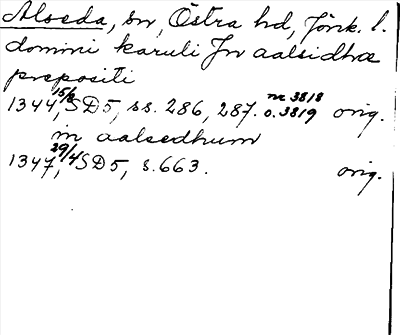 Alseda, sn, Östra hd, Jönk. l.
domini karuli Jn aalsidhæ
prepositi
1344 15/2, SD5, ss. 286, 287. nr 3818 o. 3819 orig.
in aalsedhum
1347 29/4, SD5, s. 663. orig.